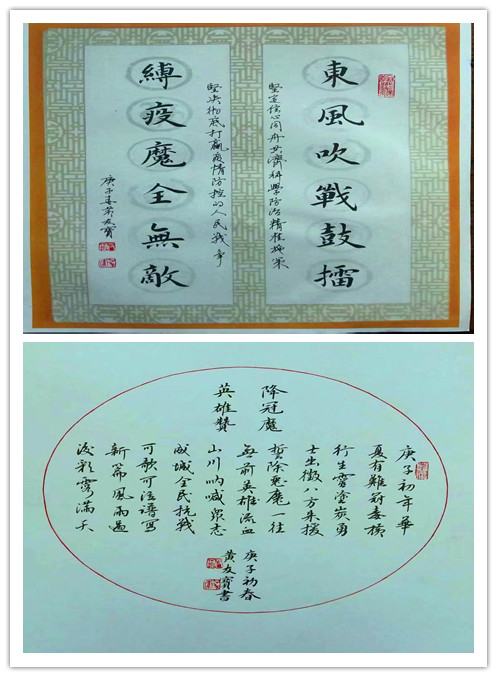 東風吹戰鼓擂
堅定信心同舟共濟科學防治精准施策
堅决彻底打贏疫情防控的人民戰争
縛疫魔全無敵
庚子春黄友寶
降冠魔
英雄贊
庚子初年華
夏有難冠毒橫
行生靈塗炭勇
士出徵八方来援
誓除惡魔一往
無前英雄流血
山川呐喊眾志
成城全民抗戰
可歌可泣譜寫
新篇風雨過
後彩霞满天
庚子初春
黄友寶書